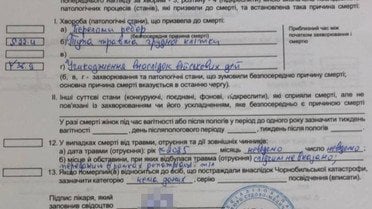 попереднього нагляду за хворим
I. Хвороба (патологічні стани), що призвело до смерті:
Приблизний час між
початком захворювання і
смертю
а) Переломи ребер
(безпосередня причина смерті)
б) Тупа травма грудної клітки
в)
г) Ушкодження внаслідок військових дій
(б, в, г - захворювання (патологічні стани), що зумовили безпосередню причину смерті,
основна причина смерті вказується в останню чергу).
II. Інші суттєві стани (конкуруючі, поєднані, фонові, підкреслити), які сприяли смерті, але не
пов'язані із захворюванням чи його ускладненням, яке безпосередньо є причиною смерті
У разі смерті жінки під час вагітності або після пологів у період до одного року зазначити тиждень
вагітності, день післяпологового періоду, тиждень після пологів
12. У випадках смерті від травми (отруєння) чи дії зовнішніх чинників:
а) дата травми (отруєння): рік 2025 місяць невідомо число невідомо;
б) місце й обставини, при яких відбулася травма (отруєння)
13. Якщо померлий(а) відноситься до осіб, що постраждали внаслідок Чорнобильської катастрофи,
зазначити категорію нема даних, серію посвідчення (вписати).
Підпис лікаря, який
заповнив свідоцтво